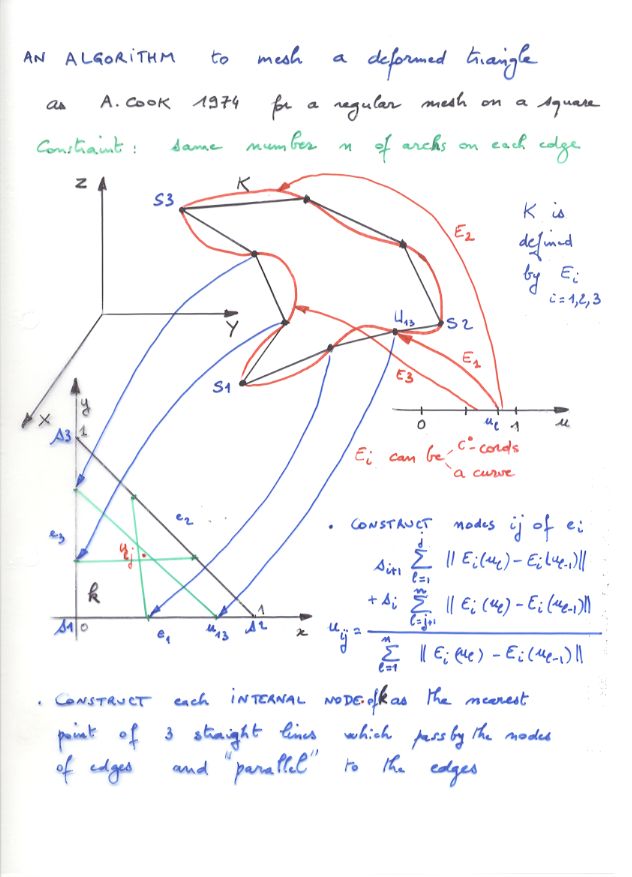 AN ALGORITHM to mesh a deformed triangle
as A. COOK 1974 for a regular mesh on a square
Constraint: same number n of archs on each edge
Z
S3
K
E2
K is
defined
by Ei
i=1,2,3
Y
U13
S2
E1
E3
S1
X
0
ul
1
u
Ei can be
C° cords
a curve
y
s3
1
e2
e3
k
s1
0
e1
u13
s2
1
x
. CONSTRUCT nodes ij of ei
uij =
si+1 ∑ j l=1 || Ei(ul) - Ei(ul-1) ||
+ si ∑ n l=j+1 || Ei(ul) - Ei(ul-1) ||
∑ n l=1 || Ei(ul) - Ei(ul-1) ||
. CONSTRUCT each INTERNAL NODE of k as the nearest
point of 3 straight lines which pass by the nodes
of edges and "parallel" to the edges